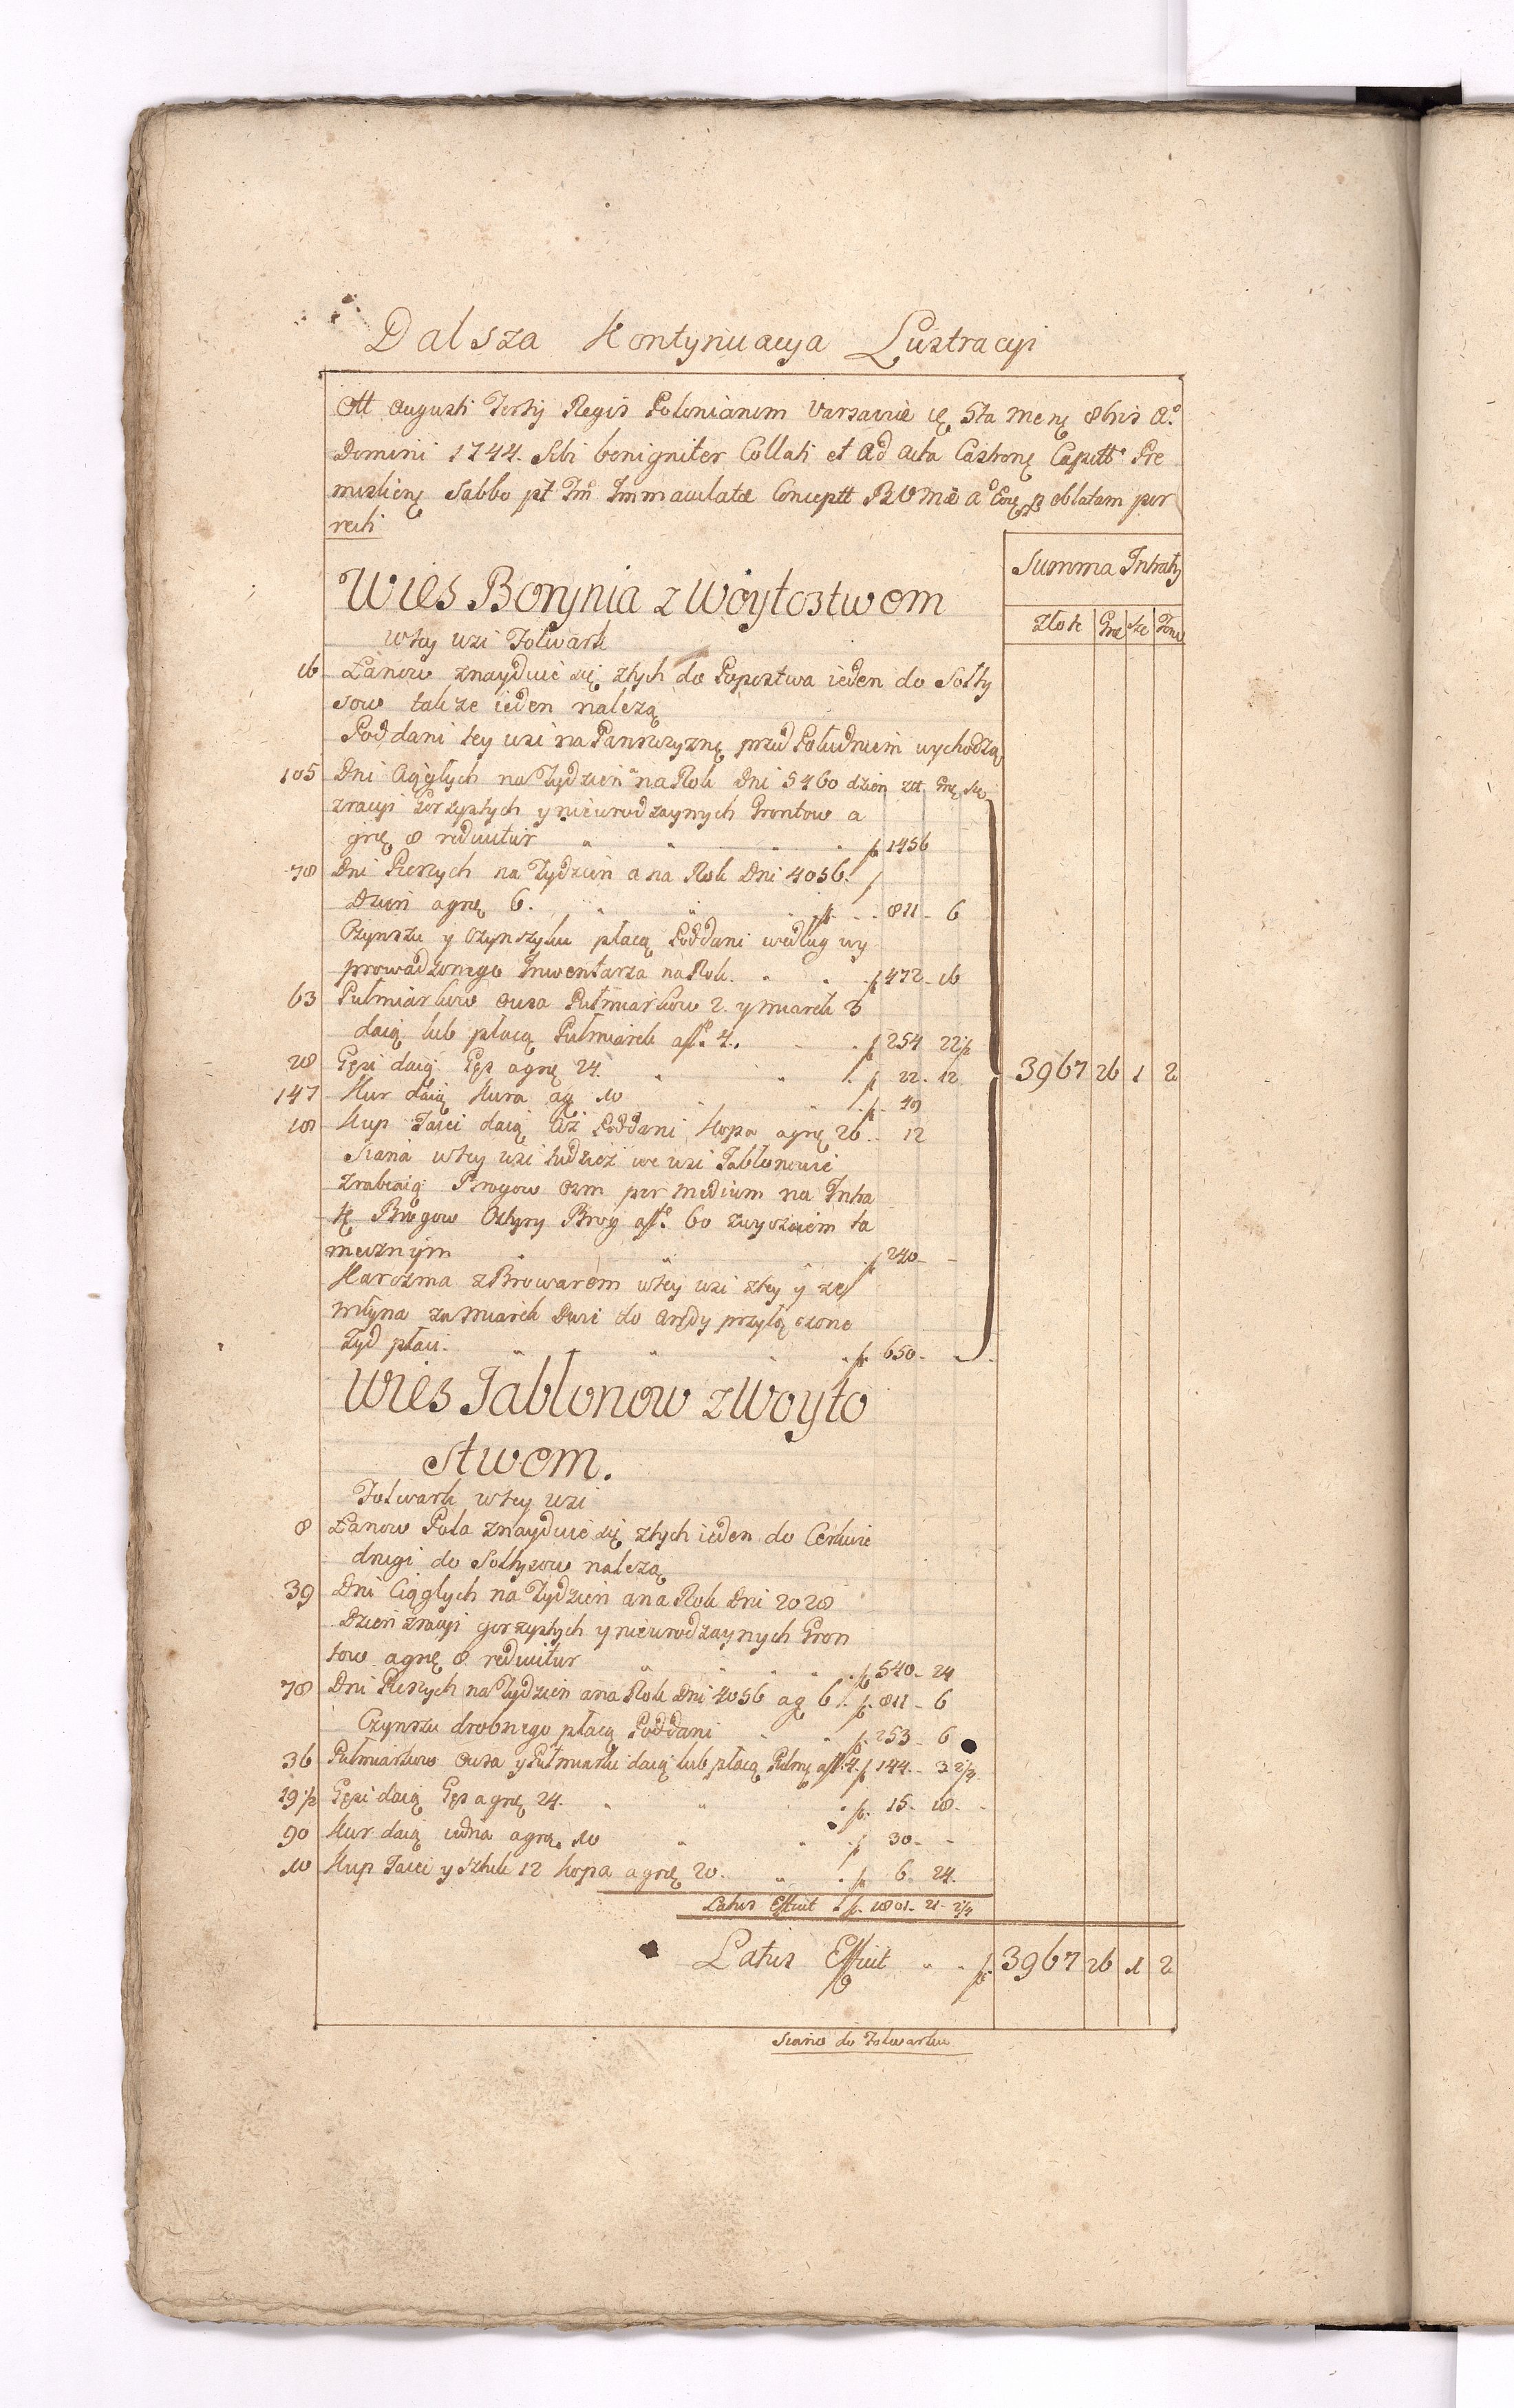 Dalsza Kontynuacya Lustracyi
Augusti Tertij Regis Poloniarum Varsaviæ 5ta 8bris A°
Domini 1744. Sibi benigniter Collati et Ad Acta Castren Capitt Pre
misliens Sabbo Immaculatæ Conceptt BVMæ a° oblatam per
recti
Summa Intraty
Wies Borynia z Woytostwem
Złote Gro Sze
wtey wsi Folwark
16 Łanow znayduie się ztych do Popostwa ieden do Sołty
sow takze ieden nalezą
Poddani tey wsi na Panszczyznę przed Południem wychodzą
105 Dni Ciągłych na Tydzień a na Rok Dni 5460 dzień
zracyi Gorzystych y nieurodzaynych Grontow a
grę 8 reduitur " " " 1456
78 Dni Pieszych na Tydzien a na Rok Dni 4056.
Dzień a grę 6. " " 811 - 6
Czynszu y Czynszyku płacą Poddani według wy
prowadzonego Inwentarza na Rok. " " 472 - 16
63 Pułmiarkow owsa Pułmiarkow 2. y miarek 3
daią lub płacą Pułmiarek a 4. 254 22½
28 Gęsi daią Gęś a grę 24. " " 22 - 12
3967 26 1 2
147 Kur daią Kura ag 10 " 49
18 Kup Jaiec daią Ciż Poddani Kopa a grę 20 12
Siana wtey wsi tudziesz we wsi Jabłonowie
zrabiaią Brogow osm per medium na Intra
tę Brogow Cztyry Brog a 60 zwyczaiem ta
mecznym " " 240 -
Karczma z Browarem wtey wsi ztey y ze
młyna za miarek Dwie do Arędy przyłączone
Zyd płaci. " " " 650 -
Wies Jabłonow z Woyto
stwem.
Folwark wtey wsi
8 Łanow Pola znayduie się ztych ieden do Cerkwie
drugi do Sołtysow nalezą
39 Dni Ciągłych na Tydzień a na Rok Dni 2028
Dzień zracyi gorzystych y nieurodzaynych Gron
tow a grę 8 reduitur " " " 540 - 24
78 Dni Pieszych na Tydzień a na Rok Dni 4056 ag 6. 811 - 6
Czynszu drobnego płacą Poddani " " 253 - 6
36 Pułmiarkow owsa y Pułmiarku daią lub płacą Pułm a 4. 144. - 3 2/4
19½ Gęsi daią Gęś a grę 24. " " 15 - 18 -
90 Kur daią iedna a grę. 10 " " 30 - -
10 Kup Jaiec y Sztuk 12 kopa a grę 20. " 6. 24.
Latus Efficit 1801 - 21 - 2/4
Latus Efficit " " 3967 26 1 2
Siano do Folwarku